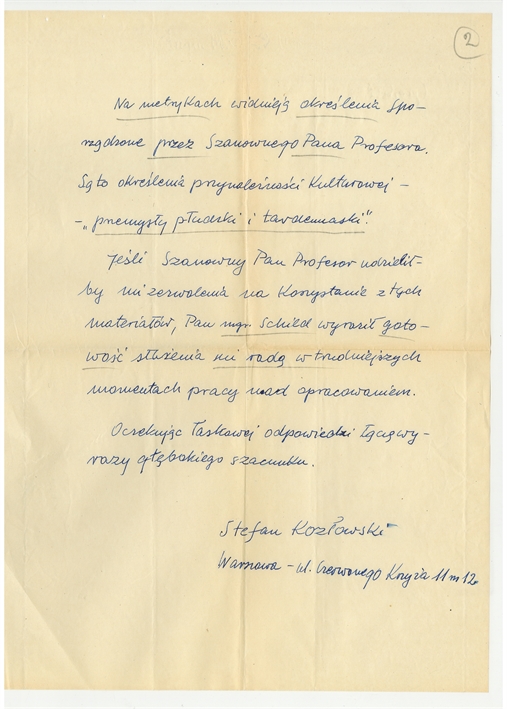 2
Na metrykach widnieją określenia spo-
rządzone przez Szanownego Pana Profesora.
Są to określenia przynależności kulturowej -
- „przemysły płudski i tardenuaski".
Jeśli Szanowny Pan Profesor udzielił-
by mi zezwolenia na korzystanie z tych
materiałów, Pan mgr. Schild wyraził goto-
wość służenia mi radą w trudniejszych
momentach pracy nad opracowaniem.
Oczekując łaskawej odpowiedzi łączę wy-
razy głębokiego szacunku.
Stefan Kozłowski
Warszawa - ul. Czerwonego Krzyża 11 m 12